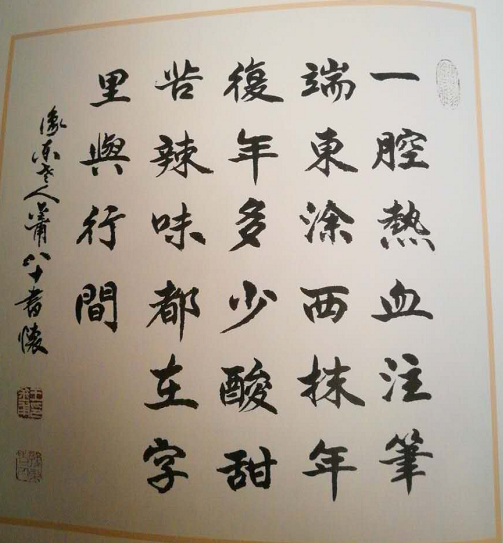 一腔熱血注筆
端東涂西抹年
復年多少酸甜
苦辣味都在字
里與行間
東老人蕭八十書懷